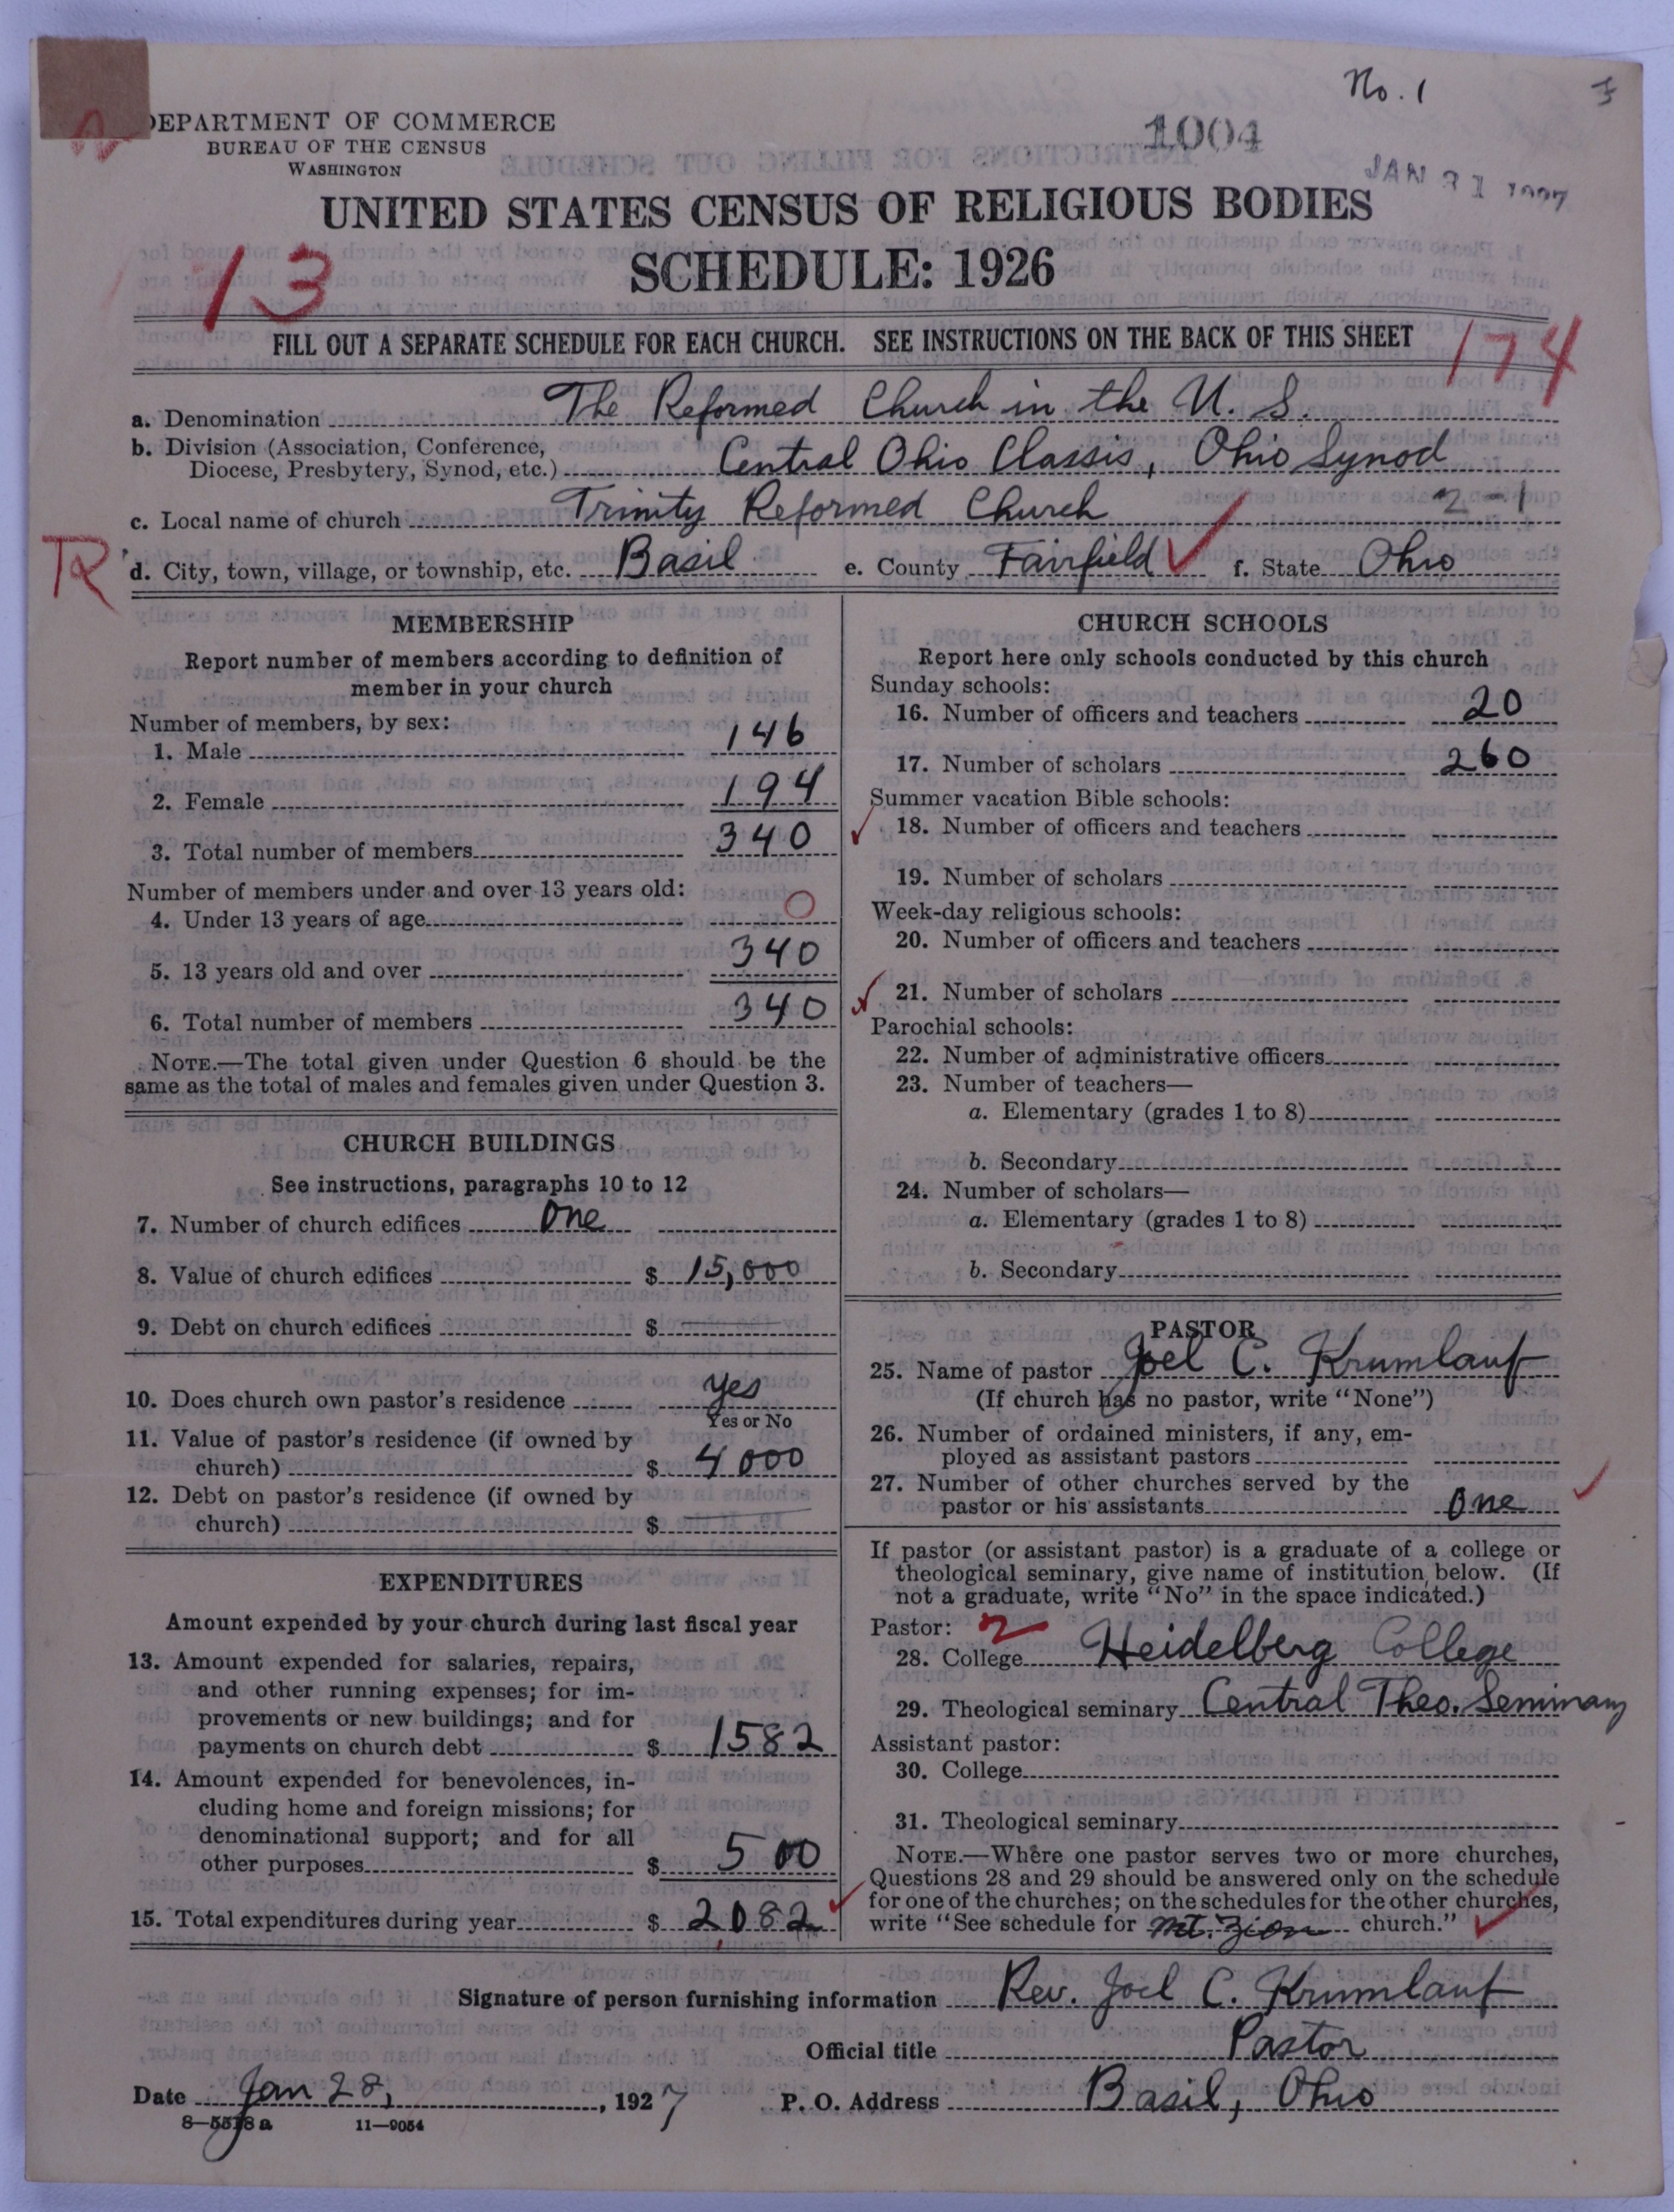 No. 1
DEPARTMENT OF COMMERCE
BUREAU OF THE CENSUS
WASHINGTON
1004
JAN 31 1927
UNITED STATES CENSUS OF RELIGIOUS BODIES
SCHEDULE: 1926
13
FILL OUT A SEPARATE SCHEDULE FOR EACH CHURCH. SEE INSTRUCTIONS ON THE BACK OF THIS SHEET
174
a. Denomination The Reformed Church in the U. S.
b. Division (Association, Conference,
Diocese, Presbytery, Synod, etc.) Central Ohio Classis, Ohio Synod
c. Local name of church Trinity Reformed Church 2-1
TR
d. City, town, village, or township, etc. Basil e. County Fairfield f. State Ohio
MEMBERSHIP
Report number of members according to definition of
member in your church
Number of members, by sex:
1. Male 146
2. Female 194
3. Total number of members 340
Number of members under and over 13 years old:
4. Under 13 years of age 0
5. 13 years old and over 340
6. Total number of members 340
NOTE.—The total given under Question 6 should be the
same as the total of males and females given under Question 3.
CHURCH BUILDINGS
See instructions, paragraphs 10 to 12
7. Number of church edifices One
8. Value of church edifices $ 15,000
9. Debt on church edifices $
10. Does church own pastor's residence yes
Yes or No
11. Value of pastor's residence (if owned by
church) $ 4000
12. Debt on pastor's residence (if owned by
church) $
EXPENDITURES
Amount expended by your church during last fiscal year
13. Amount expended for salaries, repairs,
and other running expenses; for im-
provements or new buildings; and for
payments on church debt $ 1582
14. Amount expended for benevolences, in-
cluding home and foreign missions; for
denominational support; and for all
other purposes $ 500
15. Total expenditures during year $ 2,082
CHURCH SCHOOLS
Report here only schools conducted by this church
Sunday schools:
16. Number of officers and teachers 20
17. Number of scholars 260
Summer vacation Bible schools:
18. Number of officers and teachers
19. Number of scholars
Week-day religious schools:
20. Number of officers and teachers
21. Number of scholars
Parochial schools:
22. Number of administrative officers
23. Number of teachers—
a. Elementary (grades 1 to 8)
b. Secondary
24. Number of scholars—
a. Elementary (grades 1 to 8)
b. Secondary
PASTOR
25. Name of pastor Joel C. Krumlauf
(If church has no pastor, write "None")
26. Number of ordained ministers, if any, em-
ployed as assistant pastors
27. Number of other churches served by the
pastor or his assistants One
If pastor (or assistant pastor) is a graduate of a college or
theological seminary, give name of institution below. (If
not a graduate, write "No" in the space indicated.)
Pastor: 2
28. College Heidelberg College
29. Theological seminary Central Theo. Seminary
Assistant pastor:
30. College
31. Theological seminary
NOTE.—Where one pastor serves two or more churches,
Questions 28 and 29 should be answered only on the schedule
for one of the churches; on the schedules for the other churches,
write "See schedule for Mt. Zion church."
Signature of person furnishing information Rev. Joel C. Krumlauf
Official title Pastor
Date Jan 28, 1927 P. O. Address Basil, Ohio
8—5578 a 11—9054